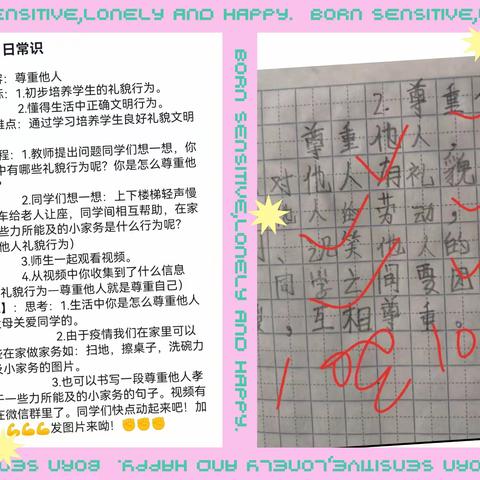 ENSITIVE,LONELY AND HAPPY. BORN SENSITIVE,
日常识
：尊重他人
标：1.初步培养学生的礼貌行为。
2.懂得生活中正确文明行为。
难点：通过学习培养学生良好礼貌文明
程：1.教师提出问题同学们想一想，你
中有哪些礼貌行为呢？你是怎么尊重他
？
2.同学们想一想：上下楼梯轻声慢
车给老人让座，同学间相互帮助，在家
些力所能及的小家务是什么行为呢？
他人礼貌行为）
3.师生一起观看视频。
4.从视频中你收集到了什么信息
礼貌行为一尊重他人就是尊重自己）
】：思考：1.生活中你是怎么尊重他人
父母关爱同学的。
2.由于疫情我们在家里可以
些在家做家务如：扫地，擦桌子，洗碗力
及小家务的图片。
3.也可以书写一段尊重他人孝
干一些力所能及的小家务的句子。视频有
在微信群里了。同学们快点动起来吧！加
💪💪💪发图片来呦！✊✊✊
BORN SENSITIVE,LONELY AND HAPPY.
2.尊重
尊重他人，
对他人有礼貌
人的劳动，
他人的
同学之间要团
，互相尊重。
BORN SENSITIVE,LONELY AND HAPPY.
BORN SEN
AND HAPPY.